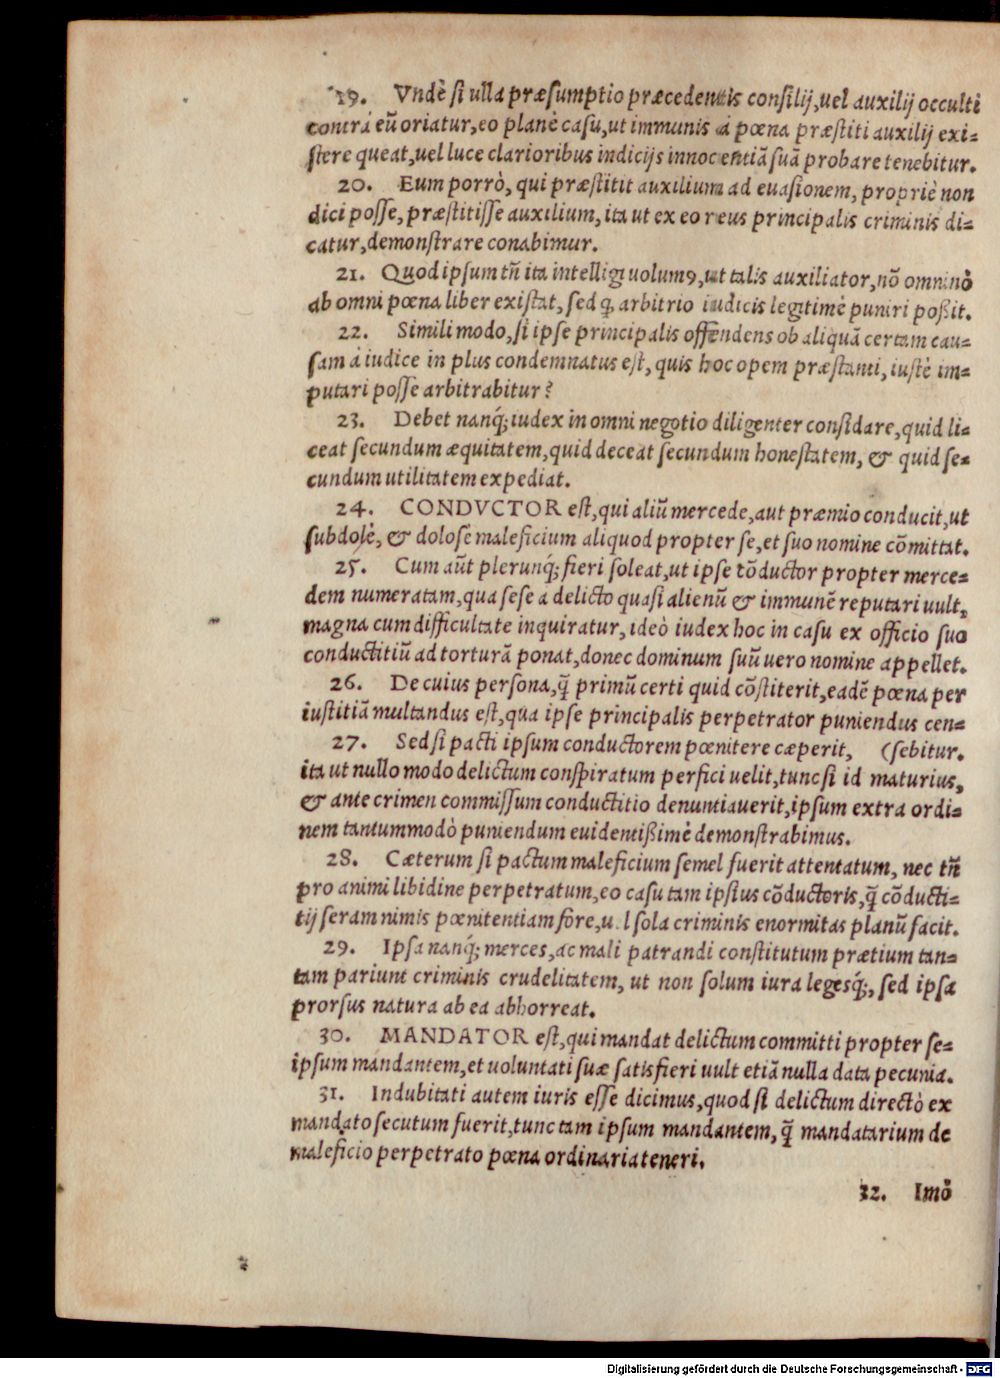 19. Vndè si ulla præsumptio præcedentis consilij, uel auxilij occultè
contrà eũ oriatur, eo planè casu, ut immunis à pœna præstiti auxilij exi=
stere queat, uel luce clarioribus indicijs innocentiã suã probare tenebitur.
20. Eum porrò, qui præstitit auxilium ad euasionem, propriè non
dici posse, præstitisse auxilium, ita ut ex eo reus principalis criminis di=
catur, demonstrare conabimur.
21. Quod ipsum tñ ita intelligi uolumꝰ, ut talis auxiliator, nõ omninò
ab omni pœna liber existat, sed ꝙ arbitrio iudicis legitimè puniri poßit.
22. Simili modo, si ipse principalis offendens ob aliquã certam cau=
sam à iudice in plus condemnatus est, quis hoc opem præstanti, iustè im=
putari posse arbitrabitur?
23. Debet nanq́; iudex in omni negotio diligenter considare, quid li=
ceat secundum æquitatem, quid deceat secundum honestatem, & quid se=
cundum utilitatem expediat.
24. CONDVCTOR est, qui aliũ mercede, aut præmio conducit, ut
subdolè, & dolosè maleficium aliquod propter se, et suo nomine cõmittat.
25. Cum aũt plerunq́; fieri soleat, ut ipse cõductor propter merce=
dem numeratam, qua sese a delicto quasi alienũ & immunẽ reputari uult,
magna cum difficultate inquiratur, ideò iudex hoc in casu ex officio suo
conductitiũ ad torturã ponat, donec dominum suũ uero nomine appellet.
26. De cuius persona, q̃ primũ certi quid cõstiterit, eadẽ pœna per
iustitiã multandus est, qua ipse principalis perpetrator puniendus cen=
27. Sed si pacti ipsum conductorem pœnitere cæperit, (sebitur.
ita ut nullo modo delictum conspiratum perfici uelit, tunc si id maturius,
& ante crimen commissum conductitio denuntiauerit, ipsum extra ordi=
nem tantummodò puniendum euidentißimè demonstrabimus.
28. Cæterum si pactum maleficium semel fuerit attentatum, nec tñ
pro animi libidine perpetratum, eo casu tam ipsius cõductoris, q̃ cõducti=
tij seram nimis pœnitentiam fore, u l sola criminis enormitas planũ facit.
29. Ipsa nanq́; merces, ac mali patrandi constitutum prætium tan=
tam pariunt criminis crudelitatem, ut non solum iura legesq́;, sed ipsa
prorsus natura ab ea abhorreat.
30. MANDATOR est, qui mandat delictum committi propter se=
ipsum mandantem, et uoluntati suæ satisfieri uult etiã nulla data pecunia.
31. Indubitati autem iuris esse dicimus, quod si delictum directò ex
mandato secutum fuerit, tunc tam ipsum mandantem, q̃ mandatarium de
maleficio perpetrato pœna ordinaria teneri.
32. Imò
Digitalisierung gefördert durch die Deutsche Forschungsgemeinschaft - DFG